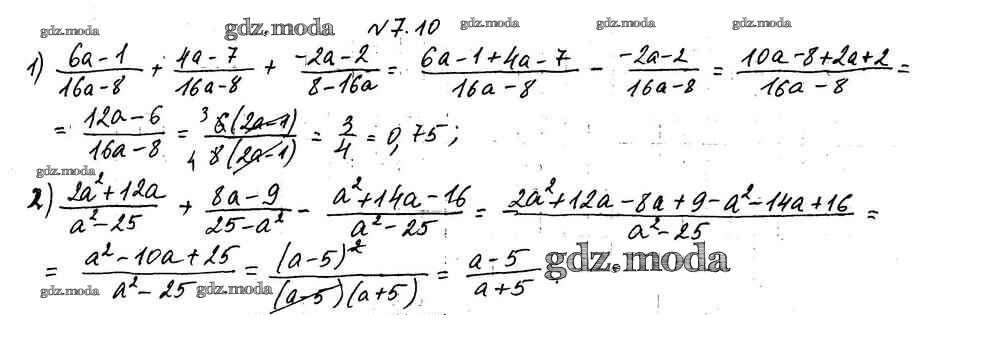 gdz.moda gdz.moda №7.10 gdz.moda gdz.moda
1) (6a-1)/(16a-8) + (4a-7)/(16a-8) + (-2a-2)/(8-16a) = (6a-1+4a-7)/(16a-8) - (-2a-2)/(16a-8) = (10a-8+2a+2)/(16a-8) =
= (12a-6)/(16a-8) = 3 6(2a-1)/4 8(2a-1) = 3/4 = 0,75;
gdz.moda
2) (2a²+12a)/(a²-25) + (8a-9)/(25-a²) - (a²+14a-16)/(a²-25) = (2a²+12a-8a+9-a²-14a+16)/(a²-25) =
= (a²-10a+25)/(a²-25) = (a-5)²/((a-5)(a+5)) = (a-5)/(a+5) gdz.moda
gdz.moda gdz.moda